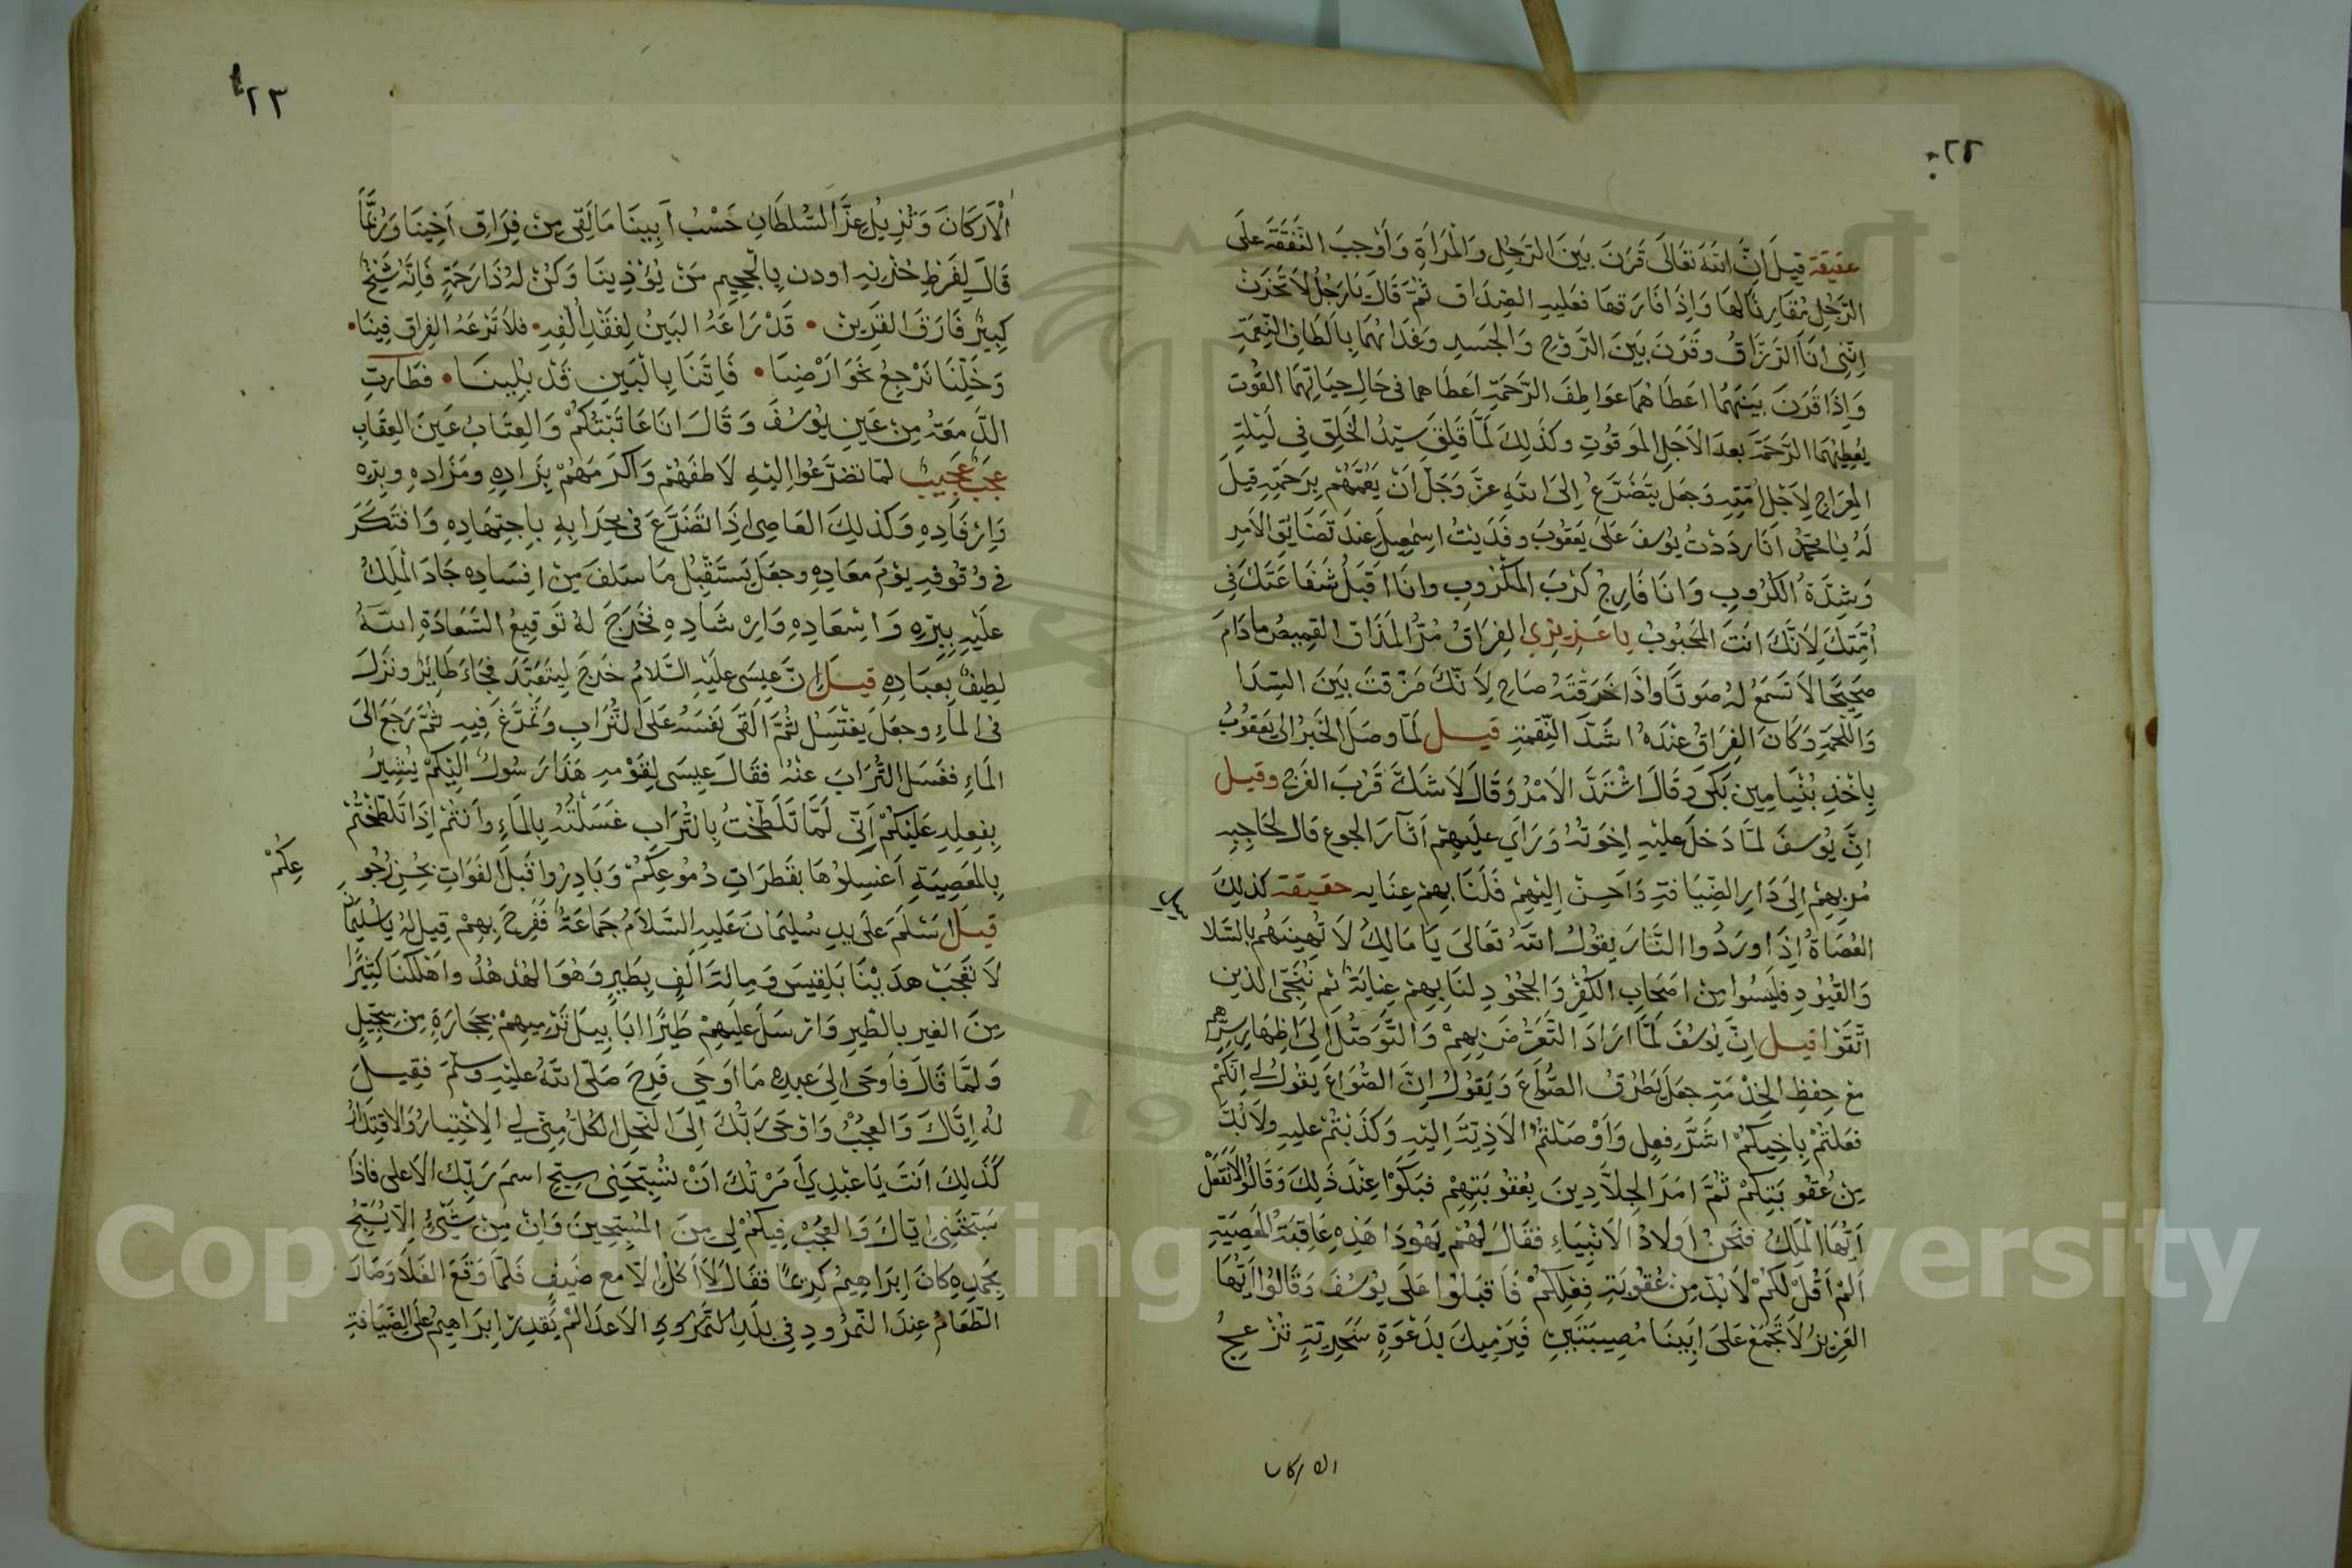 ٢٢
حقيقة قيل ان الله تعالى قرن بين الرجل والمرأة واوجب النفقة على
الرجل مقارنا لها واذا فارقها فعليه الصداق ثم قال يا رجل لا تحزن
انني انا الرزاق وقرن بين الروح والجسد وغذاهما بالطاف النعمة
واذا قرن بينهما اعطاهما عواطف الرحمة اعطاهما في حال حياتهما القوت
يعطيهما الرحمة بعد الاجل الموقوت وكذلك لما قلق سيد الخلق في ليلة
المعراج لاجل امته وجعل يتضرع الى الله عز وجل ان يعمهم برحمته قيل
له يا محمد انا رددت يوسف على يعقوب وفديت اسمعيل عند تضايق الامر
وشدة الكروب وانا فارج كرب المكروب وانا اقبل شفاعتك في
امتك لانك انت المحبوب يا عزيزي الفراق مر المذاق القميص ما دام
صحيحا لا تسمع له صوتا واذا خرقته صاح لانك مزقت بين السدا
واللحمة وكان الفراق عنده اشد النقمة قيل لما وصل الخبر الى يعقوب
باخذ بنيامين بكى وقال اشتد الامر وقال لا شك قرب الفرج وقيل
ان يوسف لما دخل عليه اخوته وراي عليهم آثار الجوع قال لحاجبه
مر بهم الى دار الضيافة واحسن اليهم فلنا بهم عنايه حقيقة كذلك
العصاة اذا وردوا النار يقول الله تعالى يا مالك لا تهينهم بالسلا
والقيود فليسوا من اصحاب الكفر والجحود لنا بهم عناية ثم ننجي الذين
اتقوا قيل ان يوسف لما اراد التعرض بهم والتوصل الى اظهار سرهم
مع حفظ الخدمة جعل يطرق الصواع ويقول ان الصواع يقول لي انكم
فعلتم باخيكم اشد فعل واوصلتم الاذية اليه وكذبتم عليه ولا بد
من عقوبتكم ثم امر الجلادين بعقوبتهم فبكوا عند ذلك وقالوا لا تفعل
ايها الملك فنحن اولاد الانبياء فقال لهم يهودا هذه عاقبة المعصية
الم اقل لكم لا بد من عقوبة فعلكم فاقبلوا على يوسف وقالوا ايها
العزيز لا تجمع على ابينا مصيبتين فيرميك بدعوة سحرية تزعج
الاركان
٢٣
الاركان وتزيل عز السلطان حسب ابينا ما لقي من فراق اخينا وربما
قال لفرط حزنه اودن بالجحيم من يؤذينا وكن له ذا رحمة فانه شيخ
كبير فارق القرين • قد راعه البين لفقد الفه • فلا ترعه الفراق فينا •
وخلنا نرجع نحو ارضنا • فاننا بالبين قد بلينا • فطارت
الدمعة من عين يوسف وقال انا عاتبتكم والعتاب عين العقاب
عجب عجيب لما تضرعوا اليه لاطفهم واكرمهم بزاده ومزاده وبره
وارفاده وكذلك العاصي اذا تضرع في محرابه باجتهاده وافتكر
في وقوفه يوم معاده وجعل يستقبل ما سلف من افساده جاد الملك
عليه ببره واسعاده وارشاده فخرج له توقيع السعادة الله
لطيف بعباده قيل ان عيسى عليه السلام خرج ليتعبد فجاء طاير ونزل
في الماء وجعل يغتسل ثم القى نفسه على التراب وتمرغ فيه ثم رجع الى
الماء فغسل التراب عنه فقال عيسى لقومه هذا رسول اليكم يشير
بفعله عليكم اني لما تلطخت بالتراب غسلته بالماء وانتم اذا تلطختم
بالمعصية اغسلوها بقطرات دموعكم وبادروا قبل الفوات بحسن رجو
عكم
قيل اسلم على يد سليمان عليه السلام جماعة ففرح بهم قيل له يا سليمان
لا تعجب هدينا بلقيس ومائة الف بطير وهو الهدهد واهلكنا كثيرا
من الغير بالطير وارسل عليهم طيرا ابابيل ترميهم بحجارة من سجيل
ولما قال فاوحى الى عبده ما اوحي فرح صلى الله عليه وسلم فقيل
له اياك والعجب واوحى ربك الى النحل الكل مني لي الاختيار والاقتدار
كذلك انت يا عبدي امرتك ان تسبحني سبح اسم ربك الاعلى فاذا
سبحتني اياك والعجب فيكم لي من المسبحين وان من شئ الا يسبح
بحمده كان ابراهيم كريما فقال لا اكل الا مع ضيف فلما وقع الغلا وصار
الطعام عند النمرود في بلد النمرود الاعدا لم يقدر ابراهيم على الضيافة